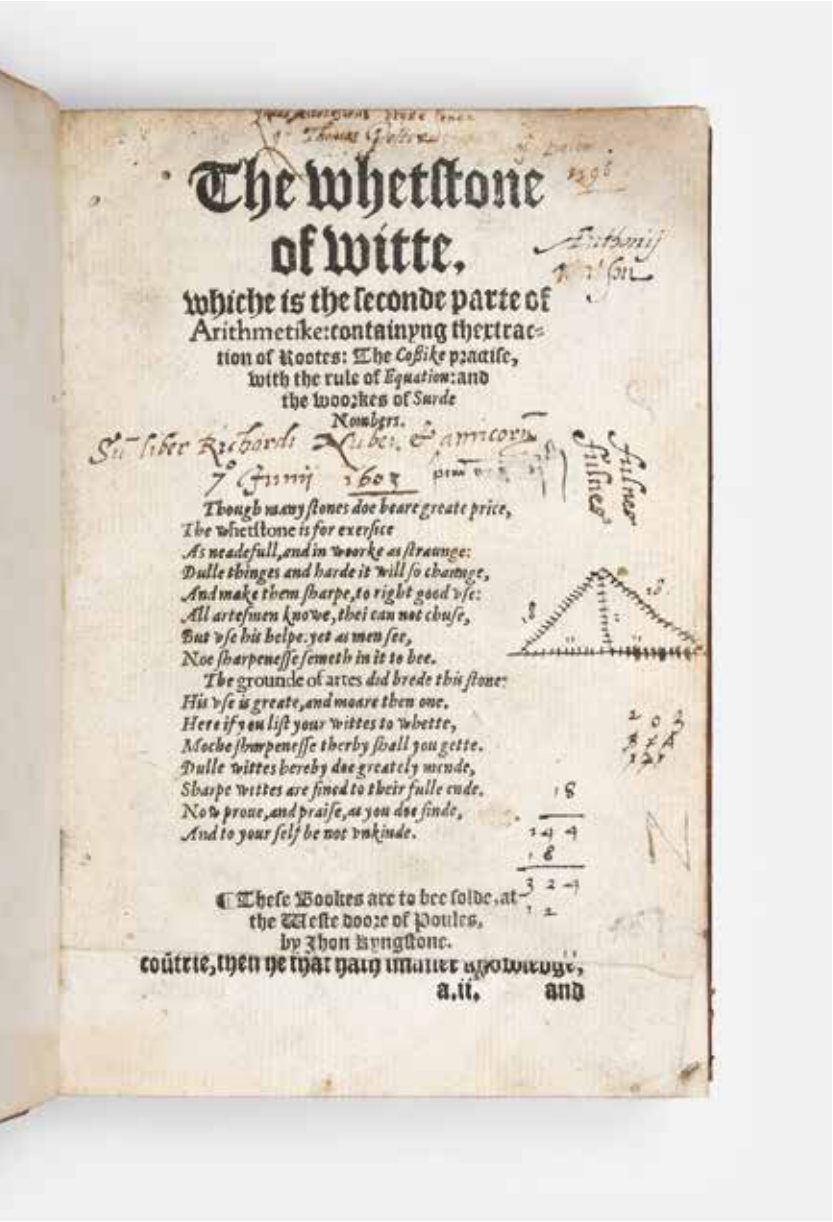 Thomas
1296
The whetstone
of witte,
whiche is the seconde parte of
Arithmetike: containyng thextrac-
tion of Rootes: The Coßike practise,
with the rule of Equation: and
the woorkes of Surde
Nombers.
Anthonij
Sū liber Richardi & amicorū
7° Junij 1603
fulner
fulner
Though many stones doe beare greate price,
The whetstone is for exersice
As neadefull, and in woorke as straunge:
Dulle thinges and harde it will so chaunge,
And make them sharpe, to right good vse:
All artesmen knowe, thei can not chuse,
But vse his helpe: yet as men see,
Noe sharpenesse semeth in it to bee.
The grounde of artes did brede this stone:
His vse is greate, and moare then one.
Here if you list your wittes to whette,
Moche sharpenesse therby shall you gette.
Dulle wittes hereby doe greately mende,
Sharpe wittes are fined to their fulle ende.
Now proue, and praise, as you doe finde,
And to your self be not vnkinde.
18
144
18
324
12
¶ These Bookes are to bee solde, at
the Weste doore of Poules,
by Jhon Kyngstone.
coūtrie, then he that hath smaller knowledge,
a.ii. and